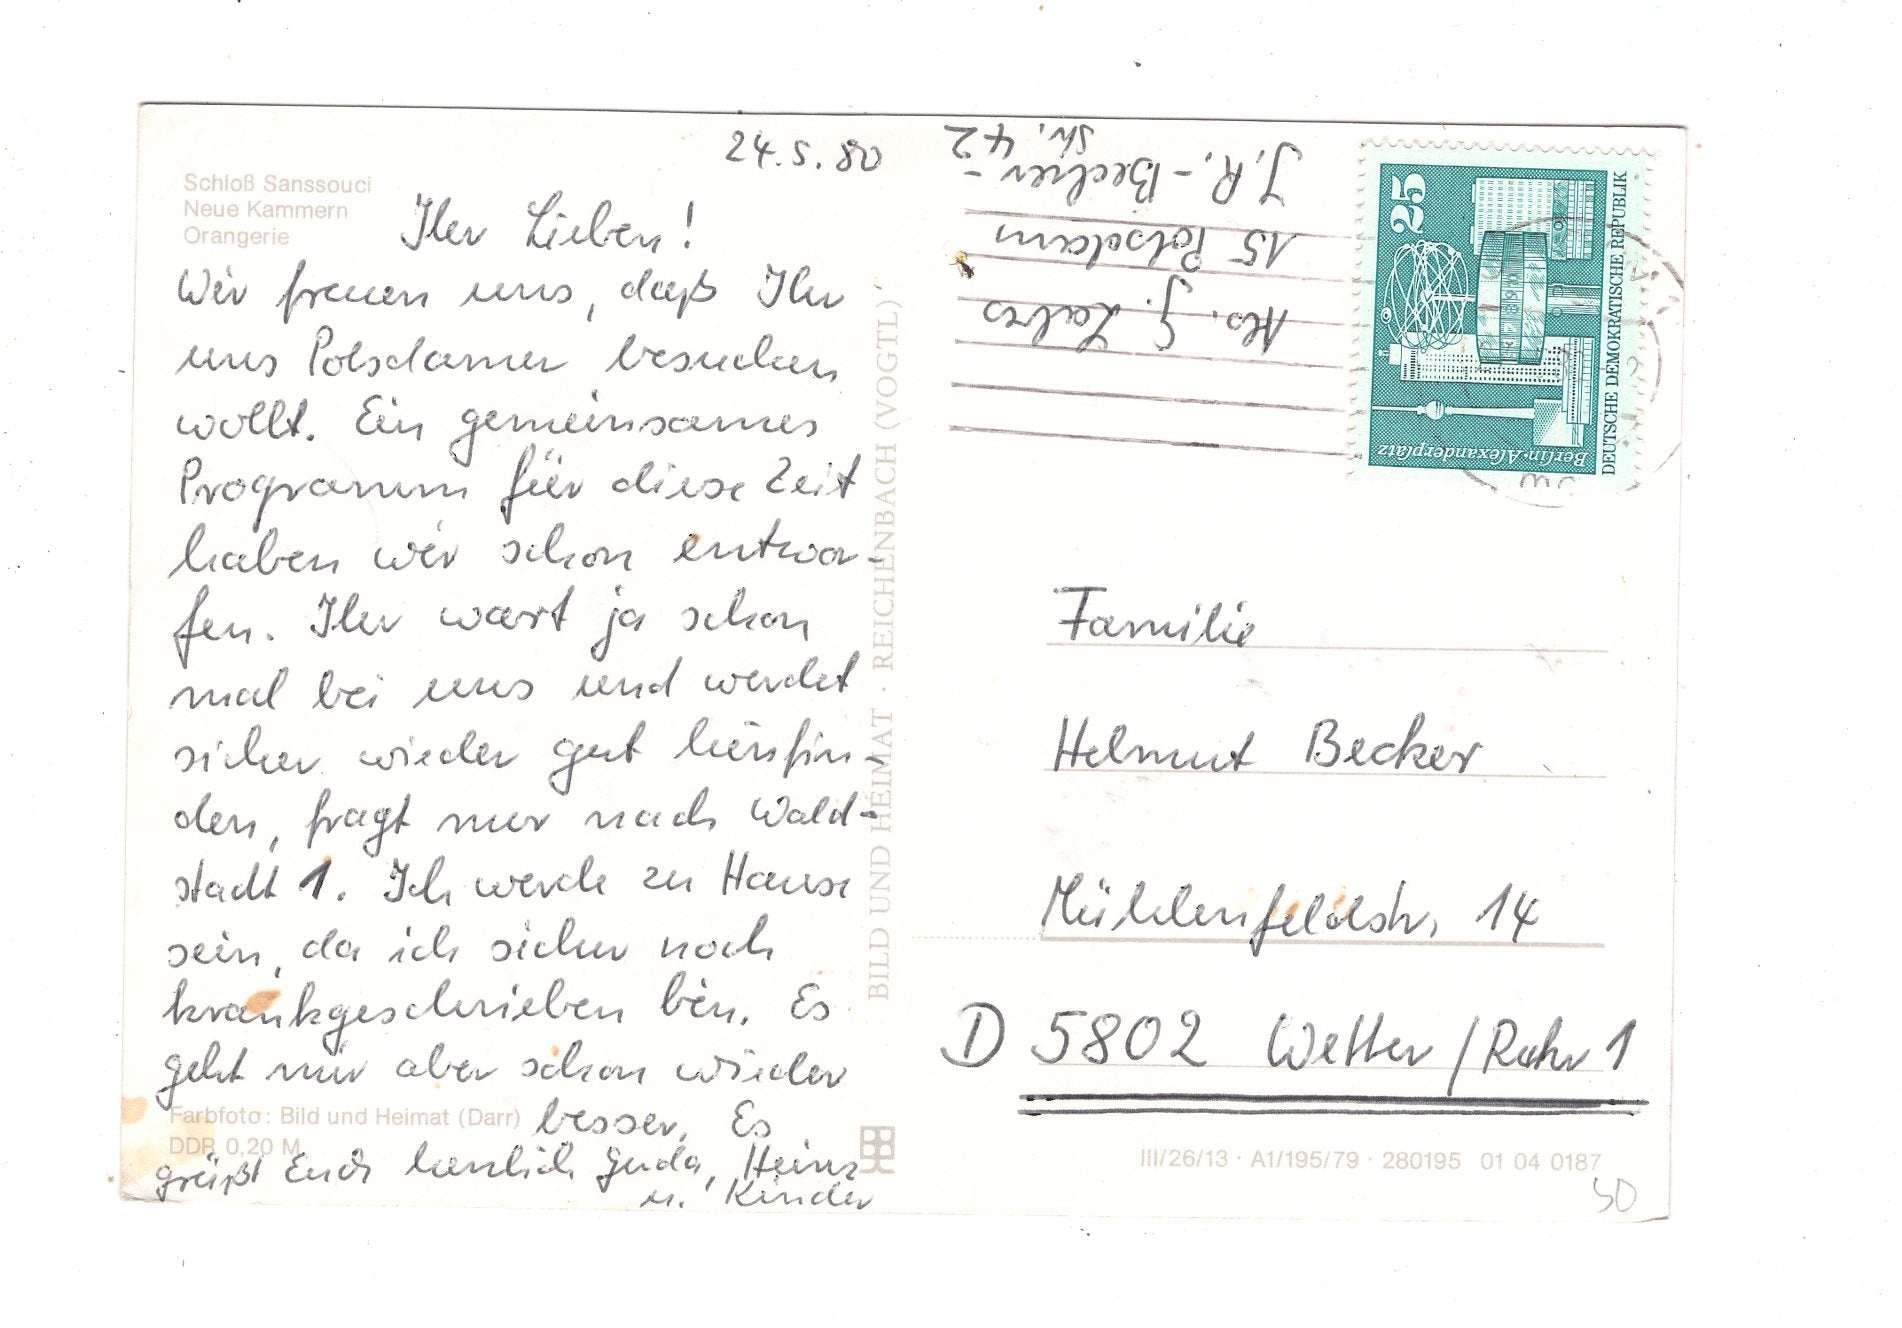 24.5.80
Schloß Sanssouci
Neue Kammern
Orangerie
Ihr Lieben!
Wir freuen uns, daß Ihr
uns Potsdamer besuchen
wollt. Ein gemeinsames
Programm für diese Zeit
haben wir schon entwor-
fen. Ihr wart ja schon
mal bei uns und werdet
sicher wieder gut hinfin-
den, fragt nur nach Wald-
stadt 1. Ich werde zu Hause
sein, da ich sicher noch
krankgeschrieben bin. Es
geht mir aber schon wieder
besser. Es
grüßt Euch herzlich Gerda, Heinz
u. Kinder
Farbfoto: Bild und Heimat (Darr)
DDR 0,20 M
BILD UND HEIMAT · REICHENBACH (VOGTL)
Abs. G.
15 Potsdam
J.R.-Becher-
Str. 42
25
Berlin-Alexanderplatz
DEUTSCHE DEMOKRATISCHE REPUBLIK
Familie
Helmut Becker
Mühlenfeldstr. 14
D 5802 Wetter/Ruhr 1
III/26/13 · A1/195/79 · 280195 01 04 0187